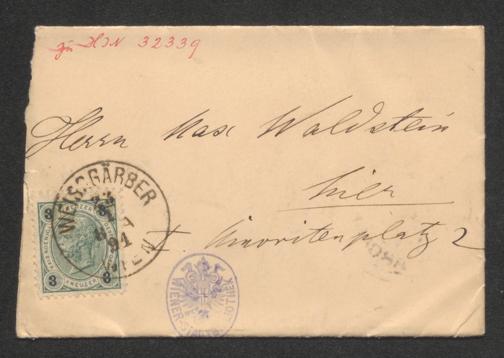 zu H.I.N 32339
Herrn Max Waldstein
hier
I Minoritenplatz 2
WEISSGÄRBER
91
WIEN
3 3
3 KREUZER 3
WIENER STADTBIBLIOTHEK